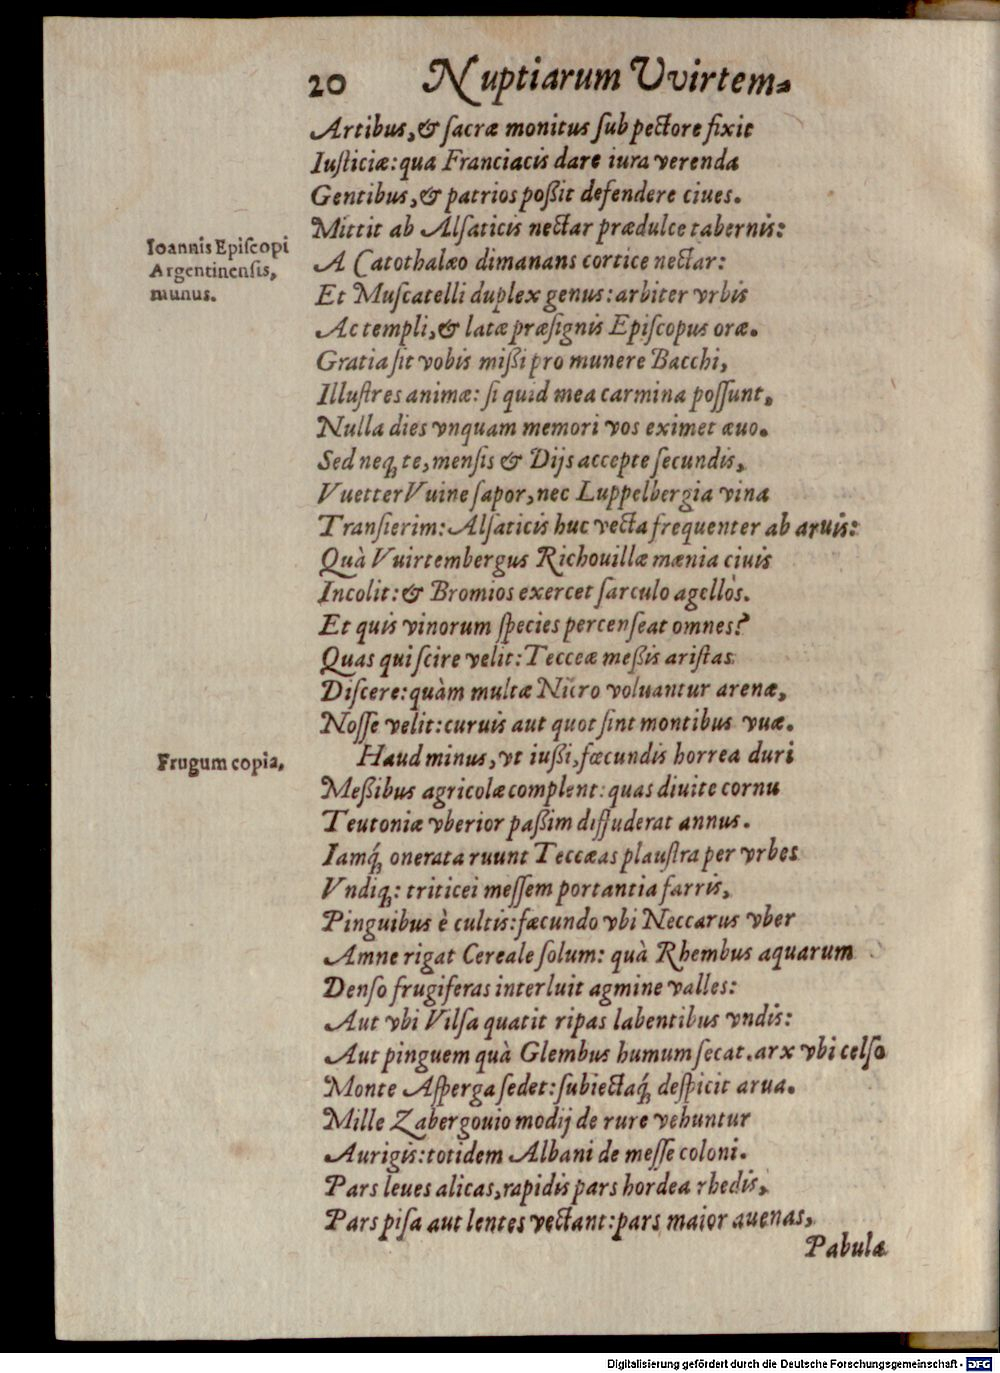 20 Nuptiarum Vvirtem-
Artibus, & sacræ monitus sub pectore fixit
Iusticiæ: qua Franciacis dare iura verenda
Gentibus, & patrios poßit defendere ciues.
Mittit ab Alsaticis nectar prædulce tabernis:
Ioannis Episcopi
Argentinensis,
munus.
A Catothalæo dimanans cortice nectar:
Et Muscatelli duplex genus: arbiter vrbis
Ac templi, & latæ præsignis Episcopus oræ.
Gratia sit vobis mißi pro munere Bacchi,
Illustres animæ: si quid mea carmina possunt,
Nulla dies vnquam memori vos eximet æuo.
Sed neq; te, mensis & Dijs accepte secundis,
Vuetter Vuine sapor, nec Luppelbergia vina
Transierim: Alsaticis huc vecta frequenter ab aruis:
Quà Vuirtembergus Richouillæ mænia ciuis
Incolit: & Bromios exercet sarculo agellos.
Et quis vinorum species percenseat omnes?
Quas qui scire velit: Tecceæ meßis aristas
Discere: quàm multæ Nicro voluantur arenæ,
Nosse velit: curuis aut quot sint montibus vuæ.
Frugum copia,
Haud minus, vt iußi, fœcundis horrea duri
Meßibus agricolæ complent: quas diuite cornu
Teutoniæ vberior paßim diffuderat annus.
Iamq́; onerata ruunt Teccæas plaustra per vrbes
Vndiq;: triticei messem portantia farris,
Pinguibus è cultis: fæcundo vbi Neccarus vber
Amne rigat Cereale solum: quà Rhembus aquarum
Denso frugiferas interluit agmine valles:
Aut vbi Vilsa quatit ripas labentibus vndis:
Aut pinguem quà Glembus humum secat. arx vbi celso
Monte Asperga sedet: subiectaq́; despicit arua.
Mille Zabergouio modij de rure vehuntur
Aurigis: totidem Albani de messe coloni.
Pars leues alicas, rapidis pars hordea rhedis,
Pars pisa aut lentes vectant: pars maior auenas,
Pabulæ
Digitalisierung gefördert durch die Deutsche Forschungsgemeinschaft - DFG